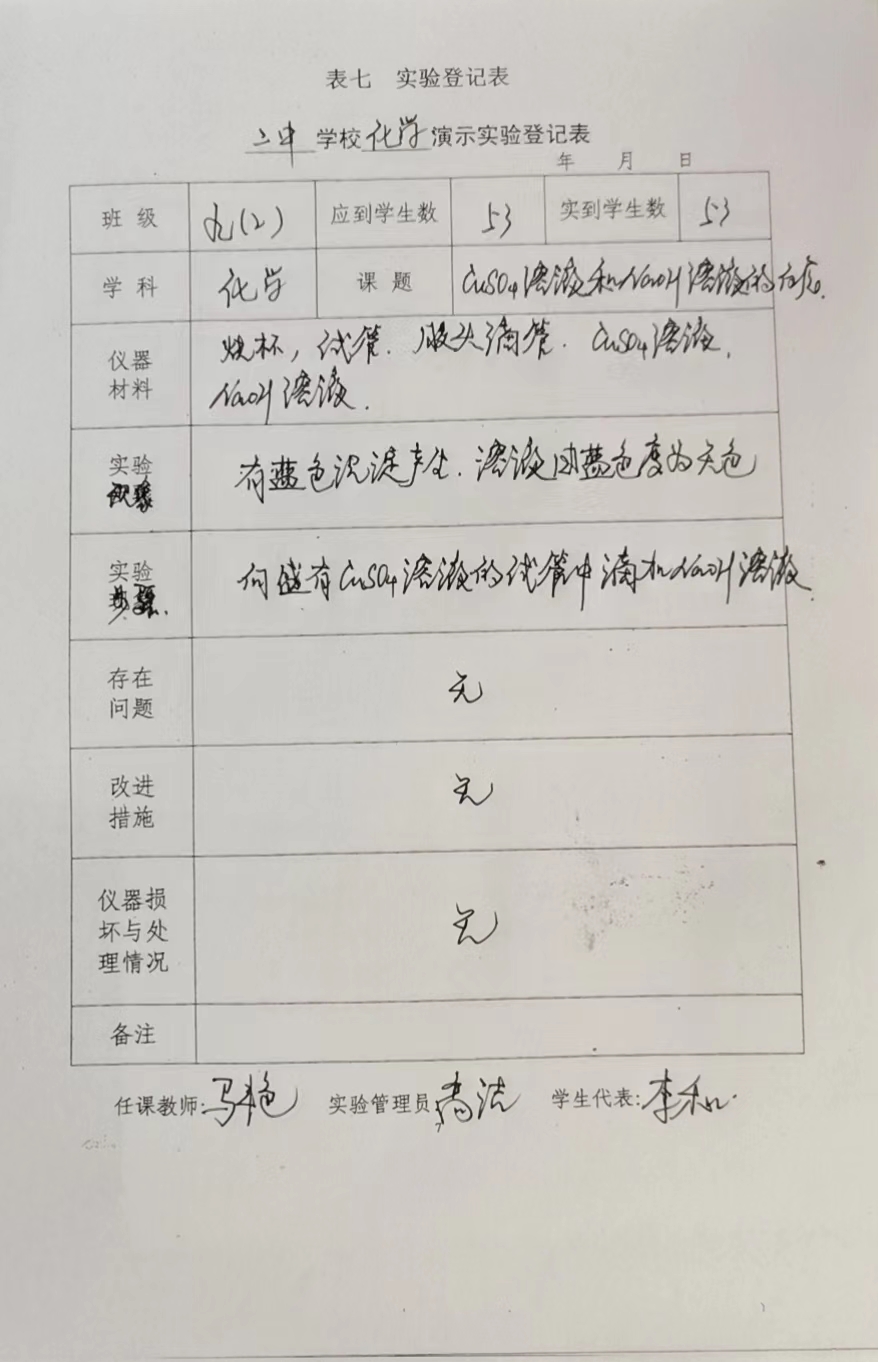 表七 实验登记表
二中学校化学演示实验登记表
年 月 日
班 级 九(2) 应到学生数 53 实到学生数 53
学 科 化学 课 题 CuSO4溶液和NaOH溶液的反应.
仪器
材料
烧杯, 试管. 胶头滴管. CuSO4溶液,
NaOH溶液.
实验
现象
有蓝色沉淀产生. 溶液由蓝色变为无色
实验
步骤.
向盛有CuSO4溶液的试管中滴加NaOH溶液.
存在
问题
无
改进
措施
无
仪器损
坏与处
理情况
无
备注
任课教师:马艳 实验管理员:高洁 学生代表:李和